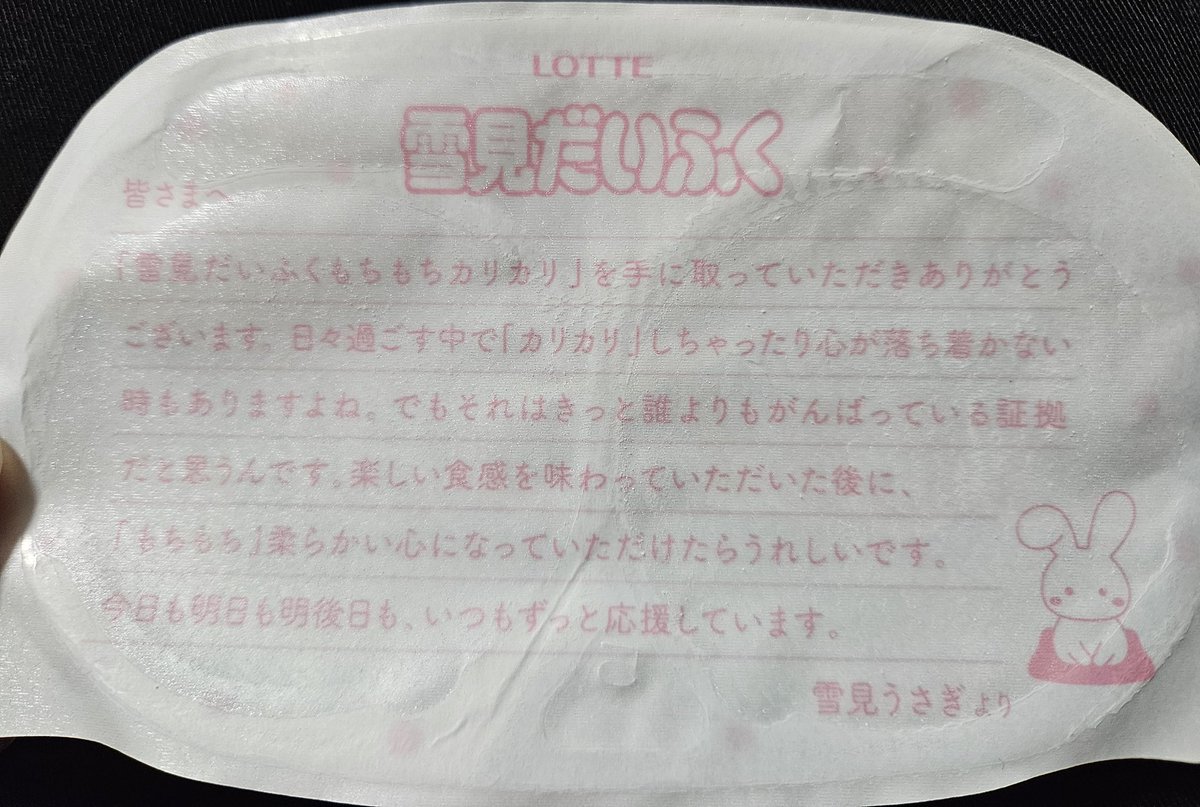 LOTTE
雪見だいふく
皆さまへ
「雪見だいふくもちもちカリカリ」を手に取っていただきありがとう
ございます。日々過ごす中で「カリカリ」しちゃったり心が落ち着かない
時もありますよね。でもそれはきっと誰よりもがんばっている証拠
だと思うんです。楽しい食感を味わっていただいた後に、
「もちもち」柔らかい心になっていただけたらうれしいです。
今日も明日も明後日も、いつもずっと応援しています。
雪見うさぎより